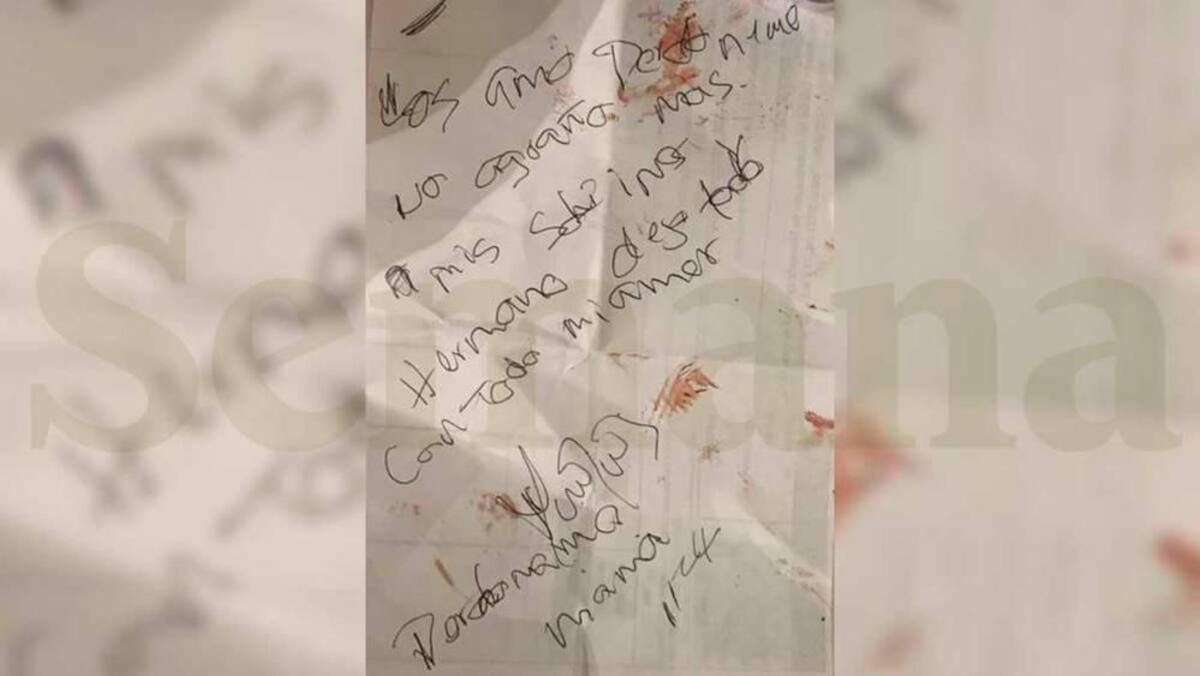 Los amo Perdoneme
no aguanto mas.
A mis Sobrinos
Hermano dejo todo
Con todo mi amor
Perdoname
mama
Semana